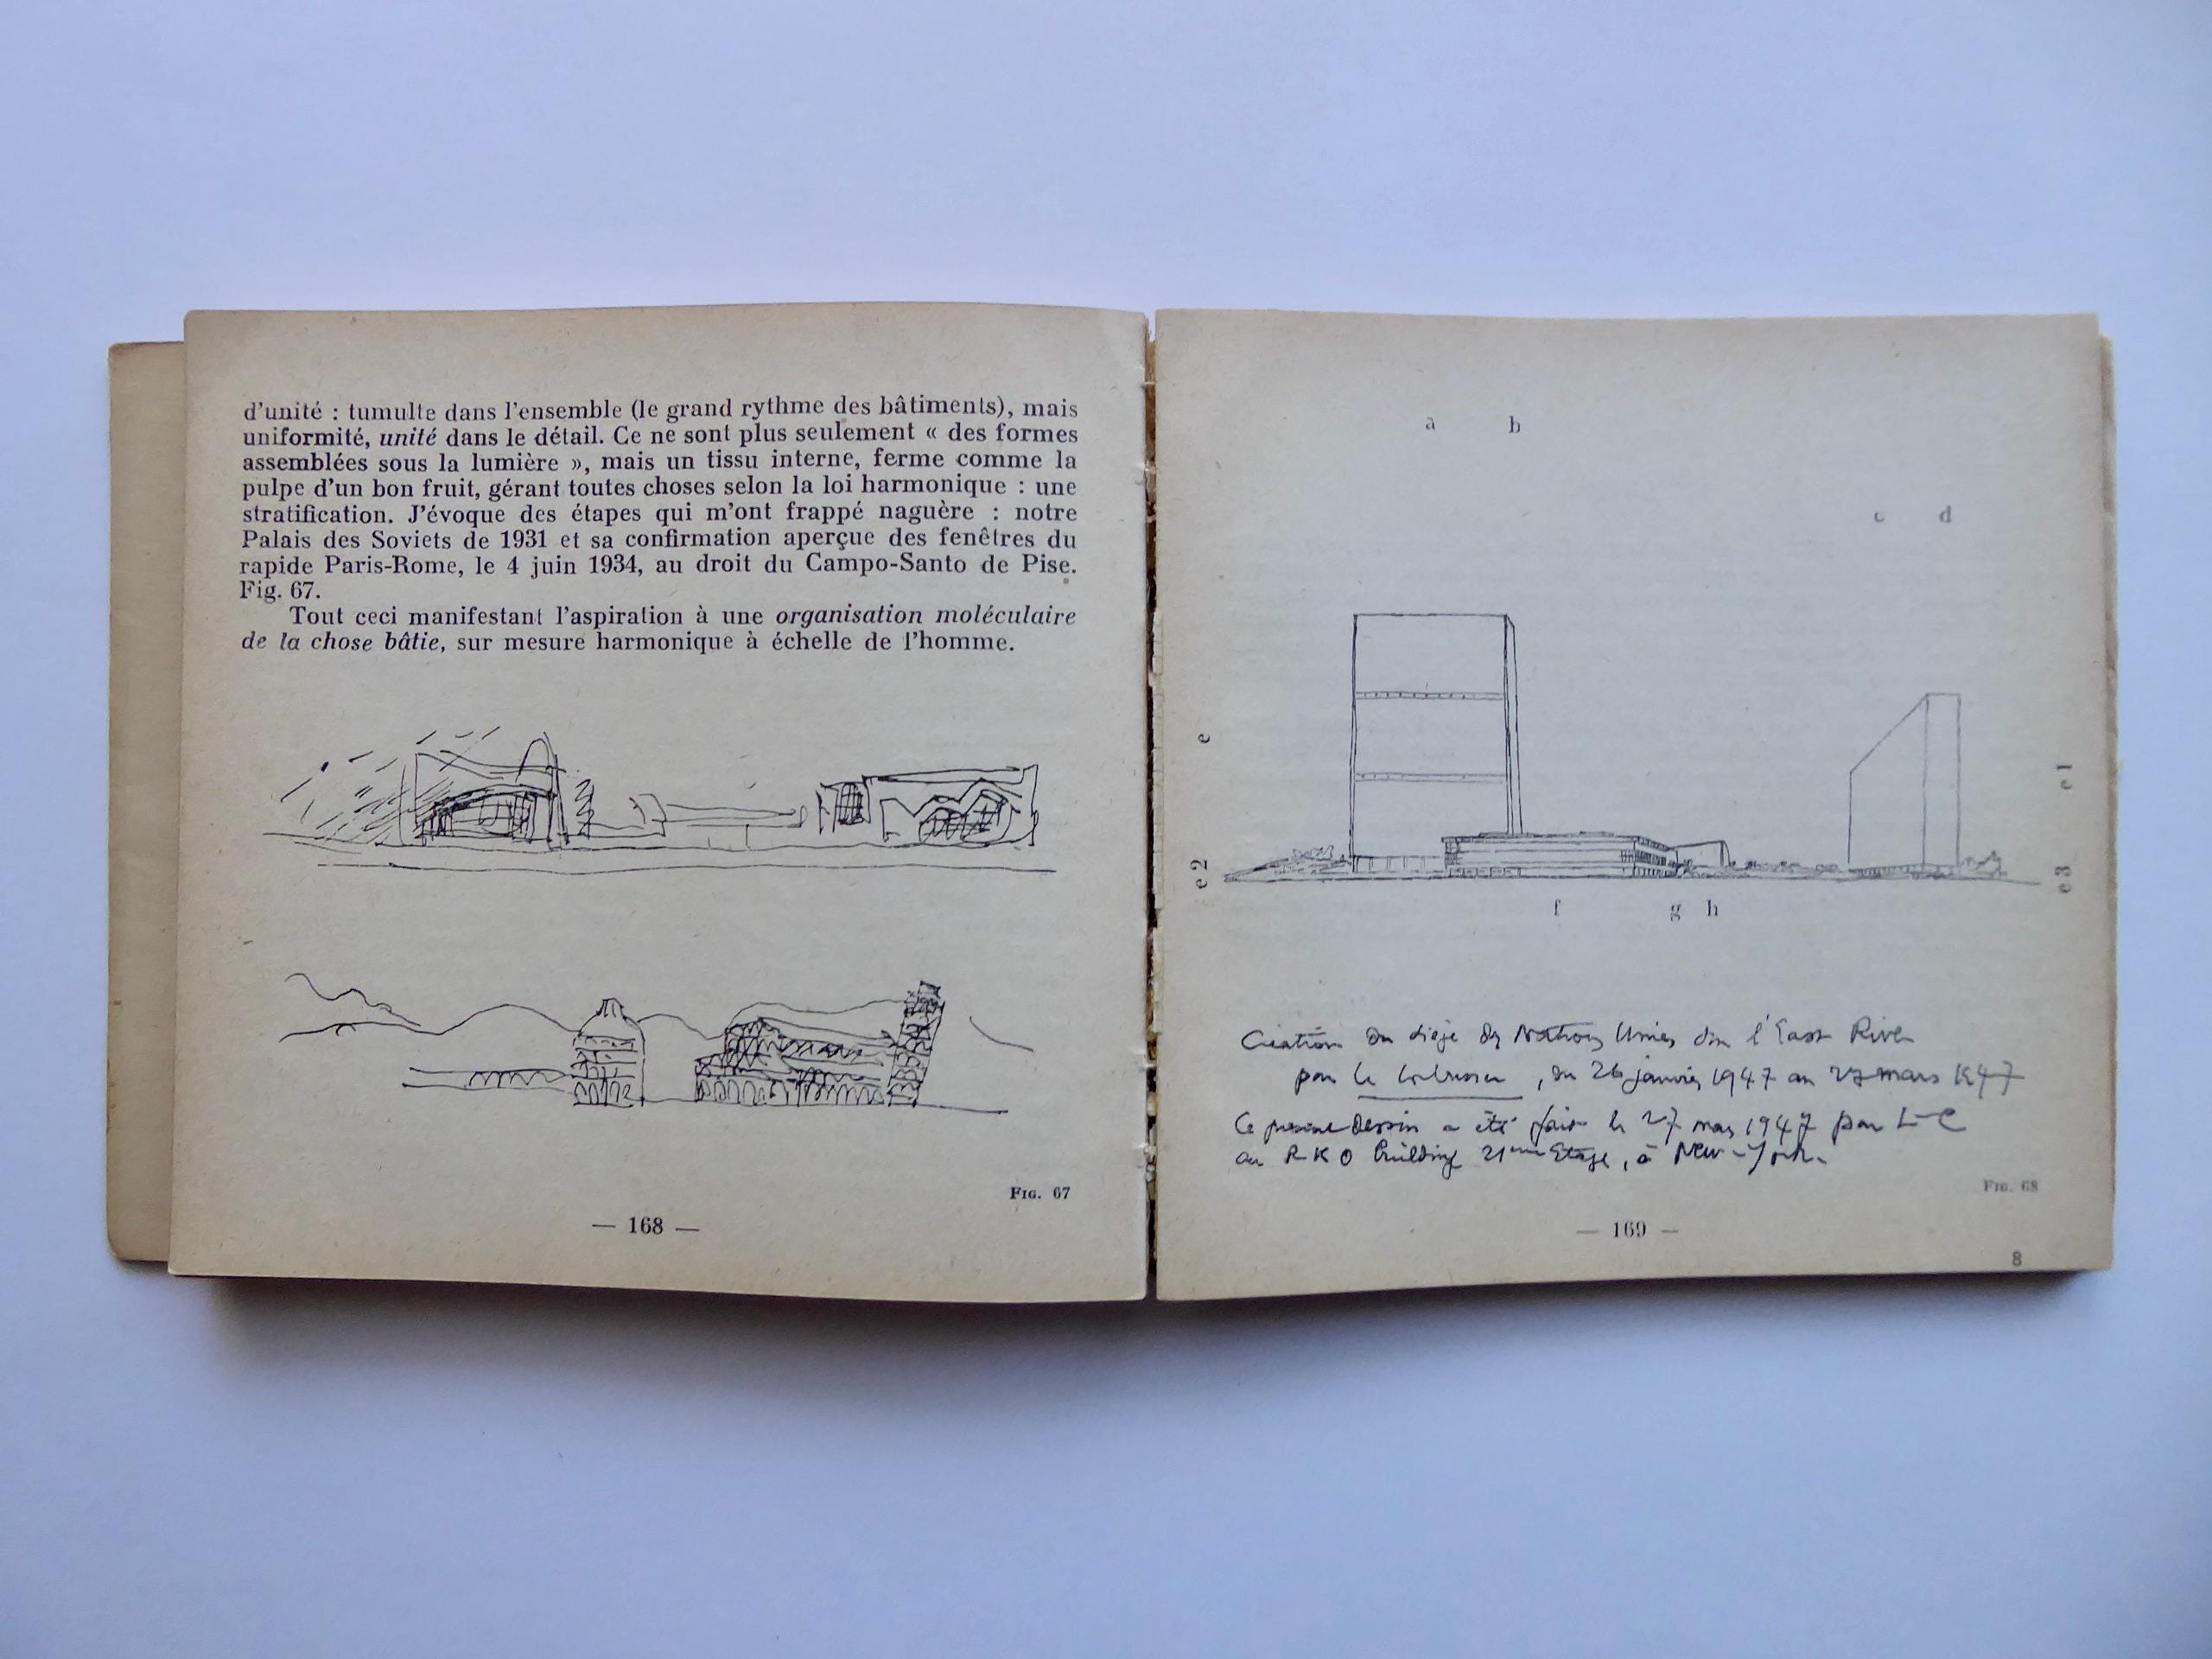 d'unité : tumulte dans l'ensemble (le grand rythme des bâtiments), mais
uniformité, unité dans le détail. Ce ne sont plus seulement « des formes
assemblées sous la lumière », mais un tissu interne, ferme comme la
pulpe d'un bon fruit, gérant toutes choses selon la loi harmonique : une
stratification. J'évoque des étapes qui m'ont frappé naguère : notre
Palais des Soviets de 1931 et sa confirmation aperçue des fenêtres du
rapide Paris-Rome, le 4 juin 1934, au droit du Campo-Santo de Pise.
Fig. 67.
Tout ceci manifestant l'aspiration à une organisation moléculaire
de la chose bâtie, sur mesure harmonique à échelle de l'homme.
FIG. 67
— 168 —
a b
c d
e
e1
e2
e3
f g h
Création du siège des Nations Unies sur l'East River
par Le Corbusier, du 26 janvier 1947 au 27 mars 1947
Ce présent dessin a été fait le 27 mars 1947 par L-C
au RKO Building 21ème Etage, à New-York.
FIG. 68
— 169 —
8